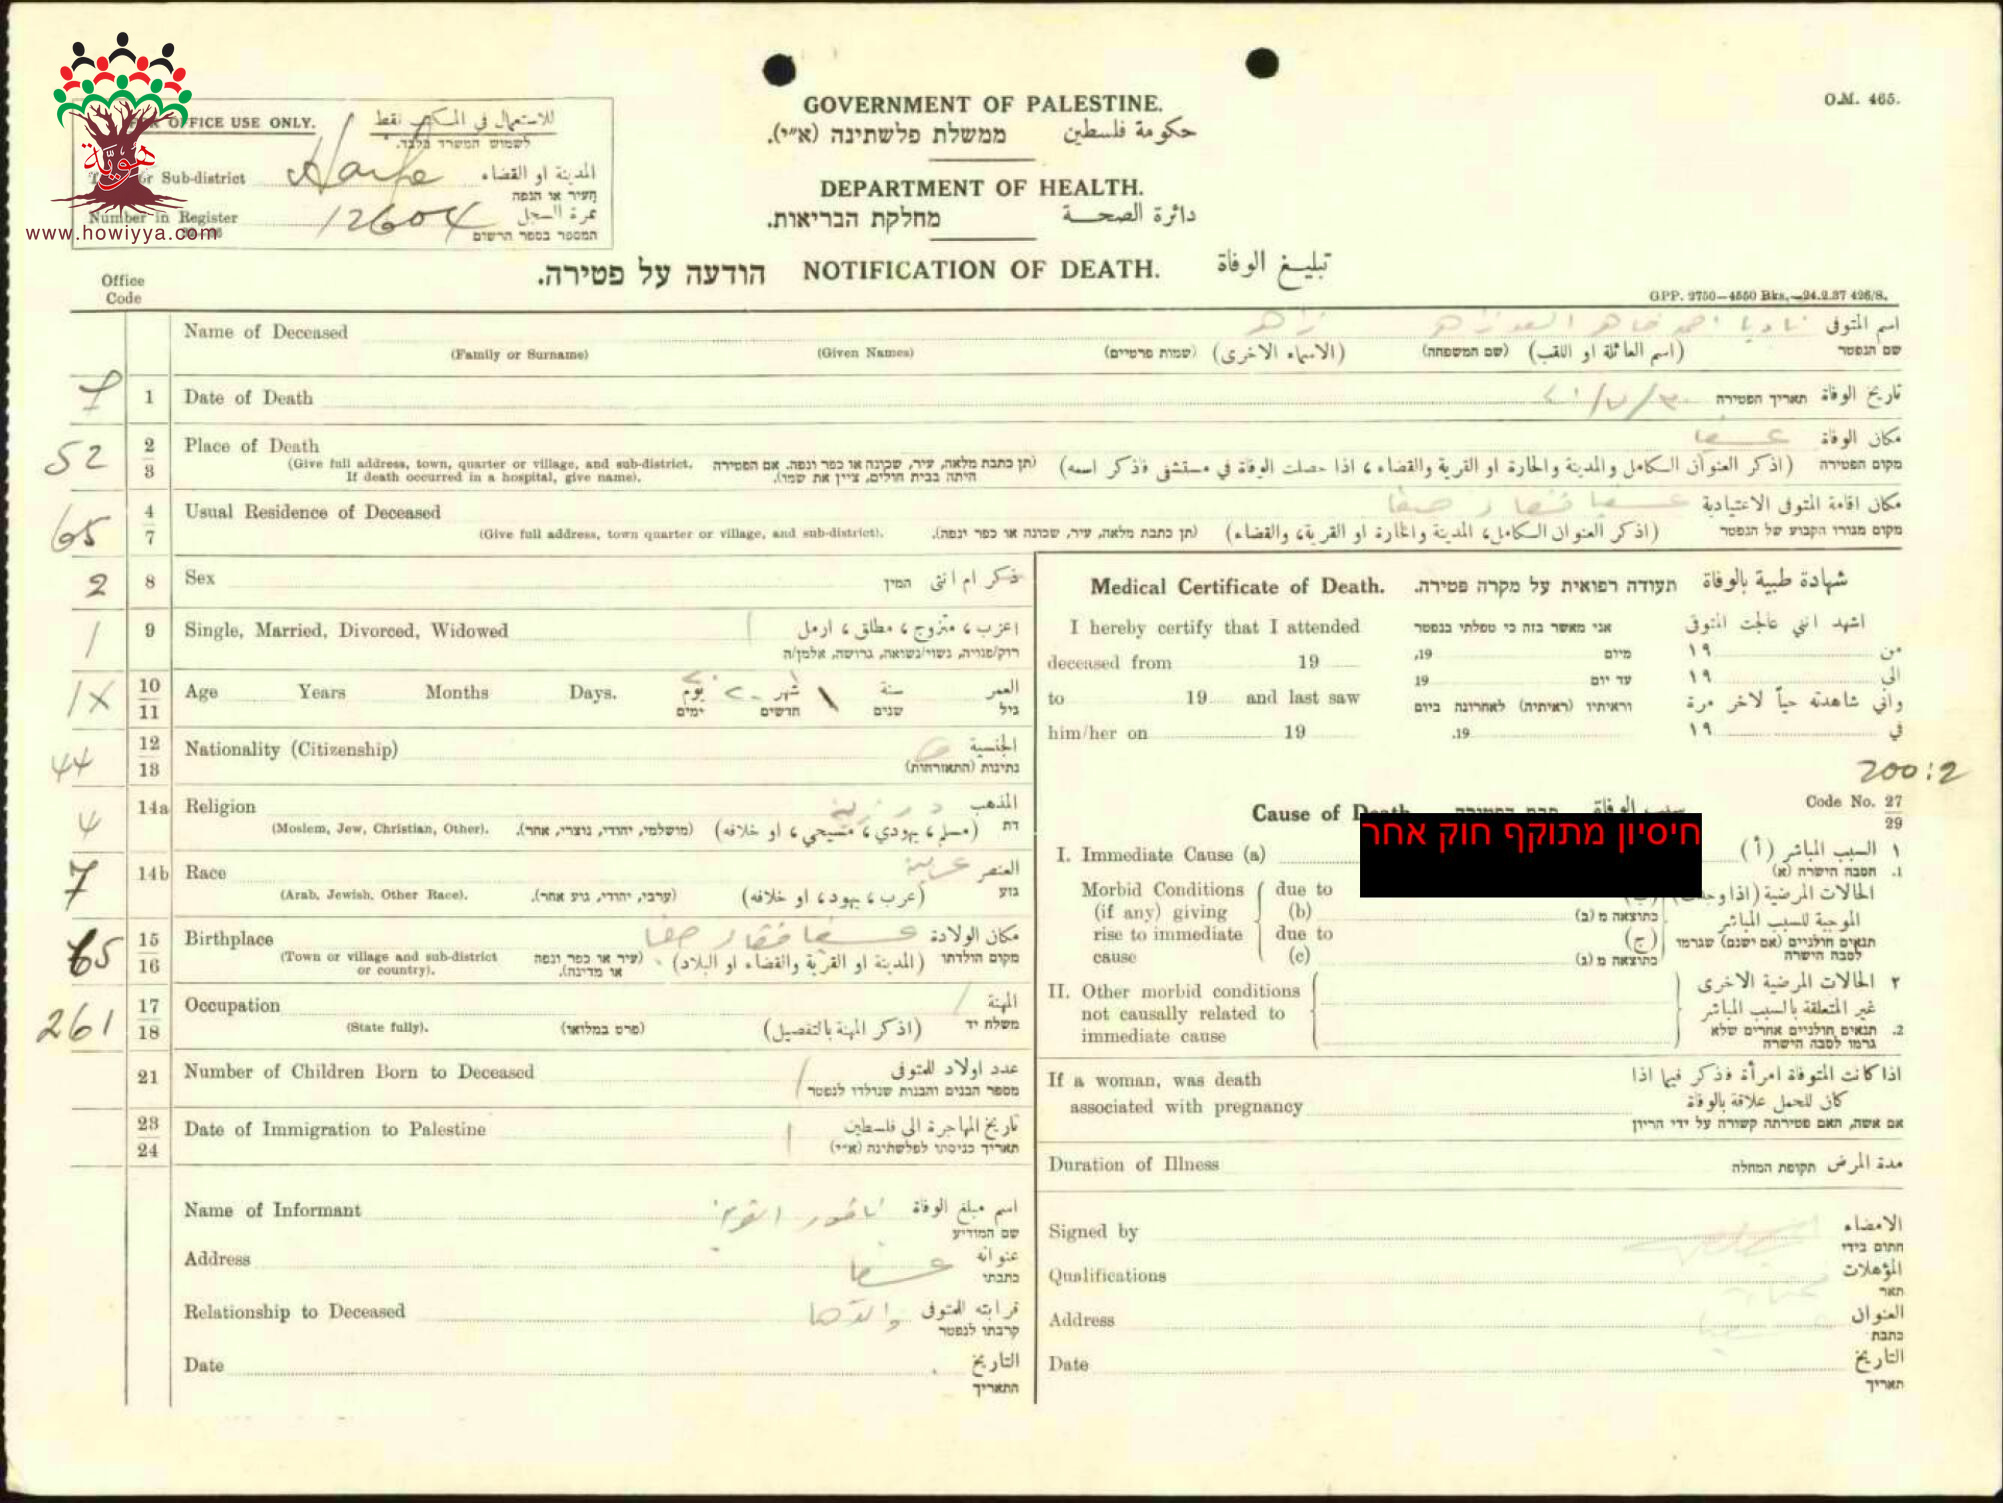 هُويّة
www.howiyya.com
O.M. 465.
FOR OFFICE USE ONLY. للاستعمال في المكتب فقط
לשמוש המשרד בלבד.
Sub-district Haifa المدينة او القضاء
העיר או הנפה
Number in Register 12604 نمرة السجل
המספר בספר הרשום
GOVERNMENT OF PALESTINE.
ממשלת פלשתינה (א״י). حكومة فلسطين
DEPARTMENT OF HEALTH.
מחלקת הבריאות. دائرة الصحة
הודעה על פטירה. NOTIFICATION OF DEATH. تبليغ الوفاة
Office
Code
GPP. 2750—4550 Bks.—24.2.37 426/S.
Name of Deceased زاهر اسم المتوفى
(Family or Surname) (Given Names) (שמות פרטיים) (الاسماء الاخرى) (שם המשפחה) (اسم العائلة او اللقب) שם הנפטר
1 Date of Death תאריך הפטירה تاريخ الوفاة
52 2 Place of Death عسفيا مكان الوفاة
3 (Give full address, town, quarter or village, and sub-district. (תן כתבת מלאה, עיר, שכונה או כפר ונפה. אם הפטירה (اذكر العنوان الكامل والمدينة والحارة او القرية والقضاء، اذا حصلت الوفاة في مستشفى فاذكر اسمه) מקום הפטירה
If death occurred in a hospital, give name). היתה בבית חולים, ציין את שמו).
65 4 Usual Residence of Deceased عسفيا قضاء حيفا مكان اقامة المتوفى الاعتيادية
7 (Give full address, town quarter or village, and sub-district). (תן כתבת מלאה, עיר, שכונה או כפר ונפה). (اذكر العنوان الكامل، المدينة والحارة او القرية، والقضاء) מקום מגורי הקבוע של הנפטר
2 8 Sex המין ذكر ام انثى
1 9 Single, Married, Divorced, Widowed اعزب، متزوج، مطلق، ارمل
רוק/פנויה, נשוי/נשואה, גרושה, אלמן/ה
1X 10 Age Years Months Days. يوم شهر سنة العمر
11 ימים חדשים שנים גיל
44 12 Nationality (Citizenship) الجنسية
13 נתינות (התאזרחות)
4 14a Religion درزية المذهب
(Moslem, Jew, Christian, Other). (מושלמי, יהודי, נוצרי, אחר). (مسلم، يهودي، مسيحي، او خلافه) דת
7 14b Race عربية العنصر
(Arab, Jewish, Other Race). (ערבי, יהודי, גזע אחר). (عرب، يهود، او خلافه) גזע
65 15 Birthplace عسفيا قضاء حيفا مكان الولادة
16 (Town or village and sub-district (עיר או כפר ונפה (المدينة او القرية والقضاء او البلاد) מקום הולדתו
or country). או מדינה).
261 17 Occupation المهنة
18 (State fully). (פרט במלואו) (اذكر المهنة بالتفصيل) משלח יד
21 Number of Children Born to Deceased عدد اولاد المتوفى
מספר הבנים והבנות שנולדו לנפטר
23 Date of Immigration to Palestine تاريخ المهاجرة الى فلسطين
24 תאריך כניסתו לפלשתינה (א״י)
Name of Informant اسم مبلغ الوفاة
שם המודיע
Address عسفيا عنوانه
כתבתו
Relationship to Deceased والدها قرابته للمتوفى
קרבתו לנפטר
Date التاريخ
התאריך
Medical Certificate of Death. תעודה רפואית על מקרה פטירה. شهادة طبية بالوفاة
I hereby certify that I attended אני מאשר בזה כי טפלתי בנפטר اشهد انني عالجت المتوفى
deceased from 19 19, מיום من ١٩
to 19 and last saw 19 עד יום الى ١٩
וראיתיו (ראיתיה) לאחרונה ביום واني شاهدته حياً لاخر مرة
him/her on 19 19. في ١٩
200:2
Cause of Death סבת הפטירה سبب الوفاة Code No. 27
29
חיסיון מתוקף חוק אחר
I. Immediate Cause (a) ١ السبب المباشر (أ)
1. הסבה הישרה (א)
Morbid Conditions due to الحالات المرضية (اذا وجدت)
(if any) giving (b) כתוצאה מ (ב) الموجبة للسبب المباشر
rise to immediate due to (ج) תנאים חולניים (אם ישנם) שגרמו
cause (c) כתוצאה מ (ג) לסבה הישרה
II. Other morbid conditions ٢ الحالات المرضية الاخرى
not causally related to غير المتعلقة بالسبب المباشر
immediate cause 2. תנאים חולניים אחרים שלא
גרמו לסבה הישרה
If a woman, was death اذا كانت المتوفاة امرأة فذكر فيما اذا
associated with pregnancy كان للحمل علاقة بالوفاة
אם אשה, האם פטירתה קשורה על ידי הריון
Duration of Illness תקופת המחלה مدة المرض
Signed by الامضاء
חתום בידי
Qualifications المؤهلات
תאר
Address العنوان
כתבת
Date التاريخ
תאריך